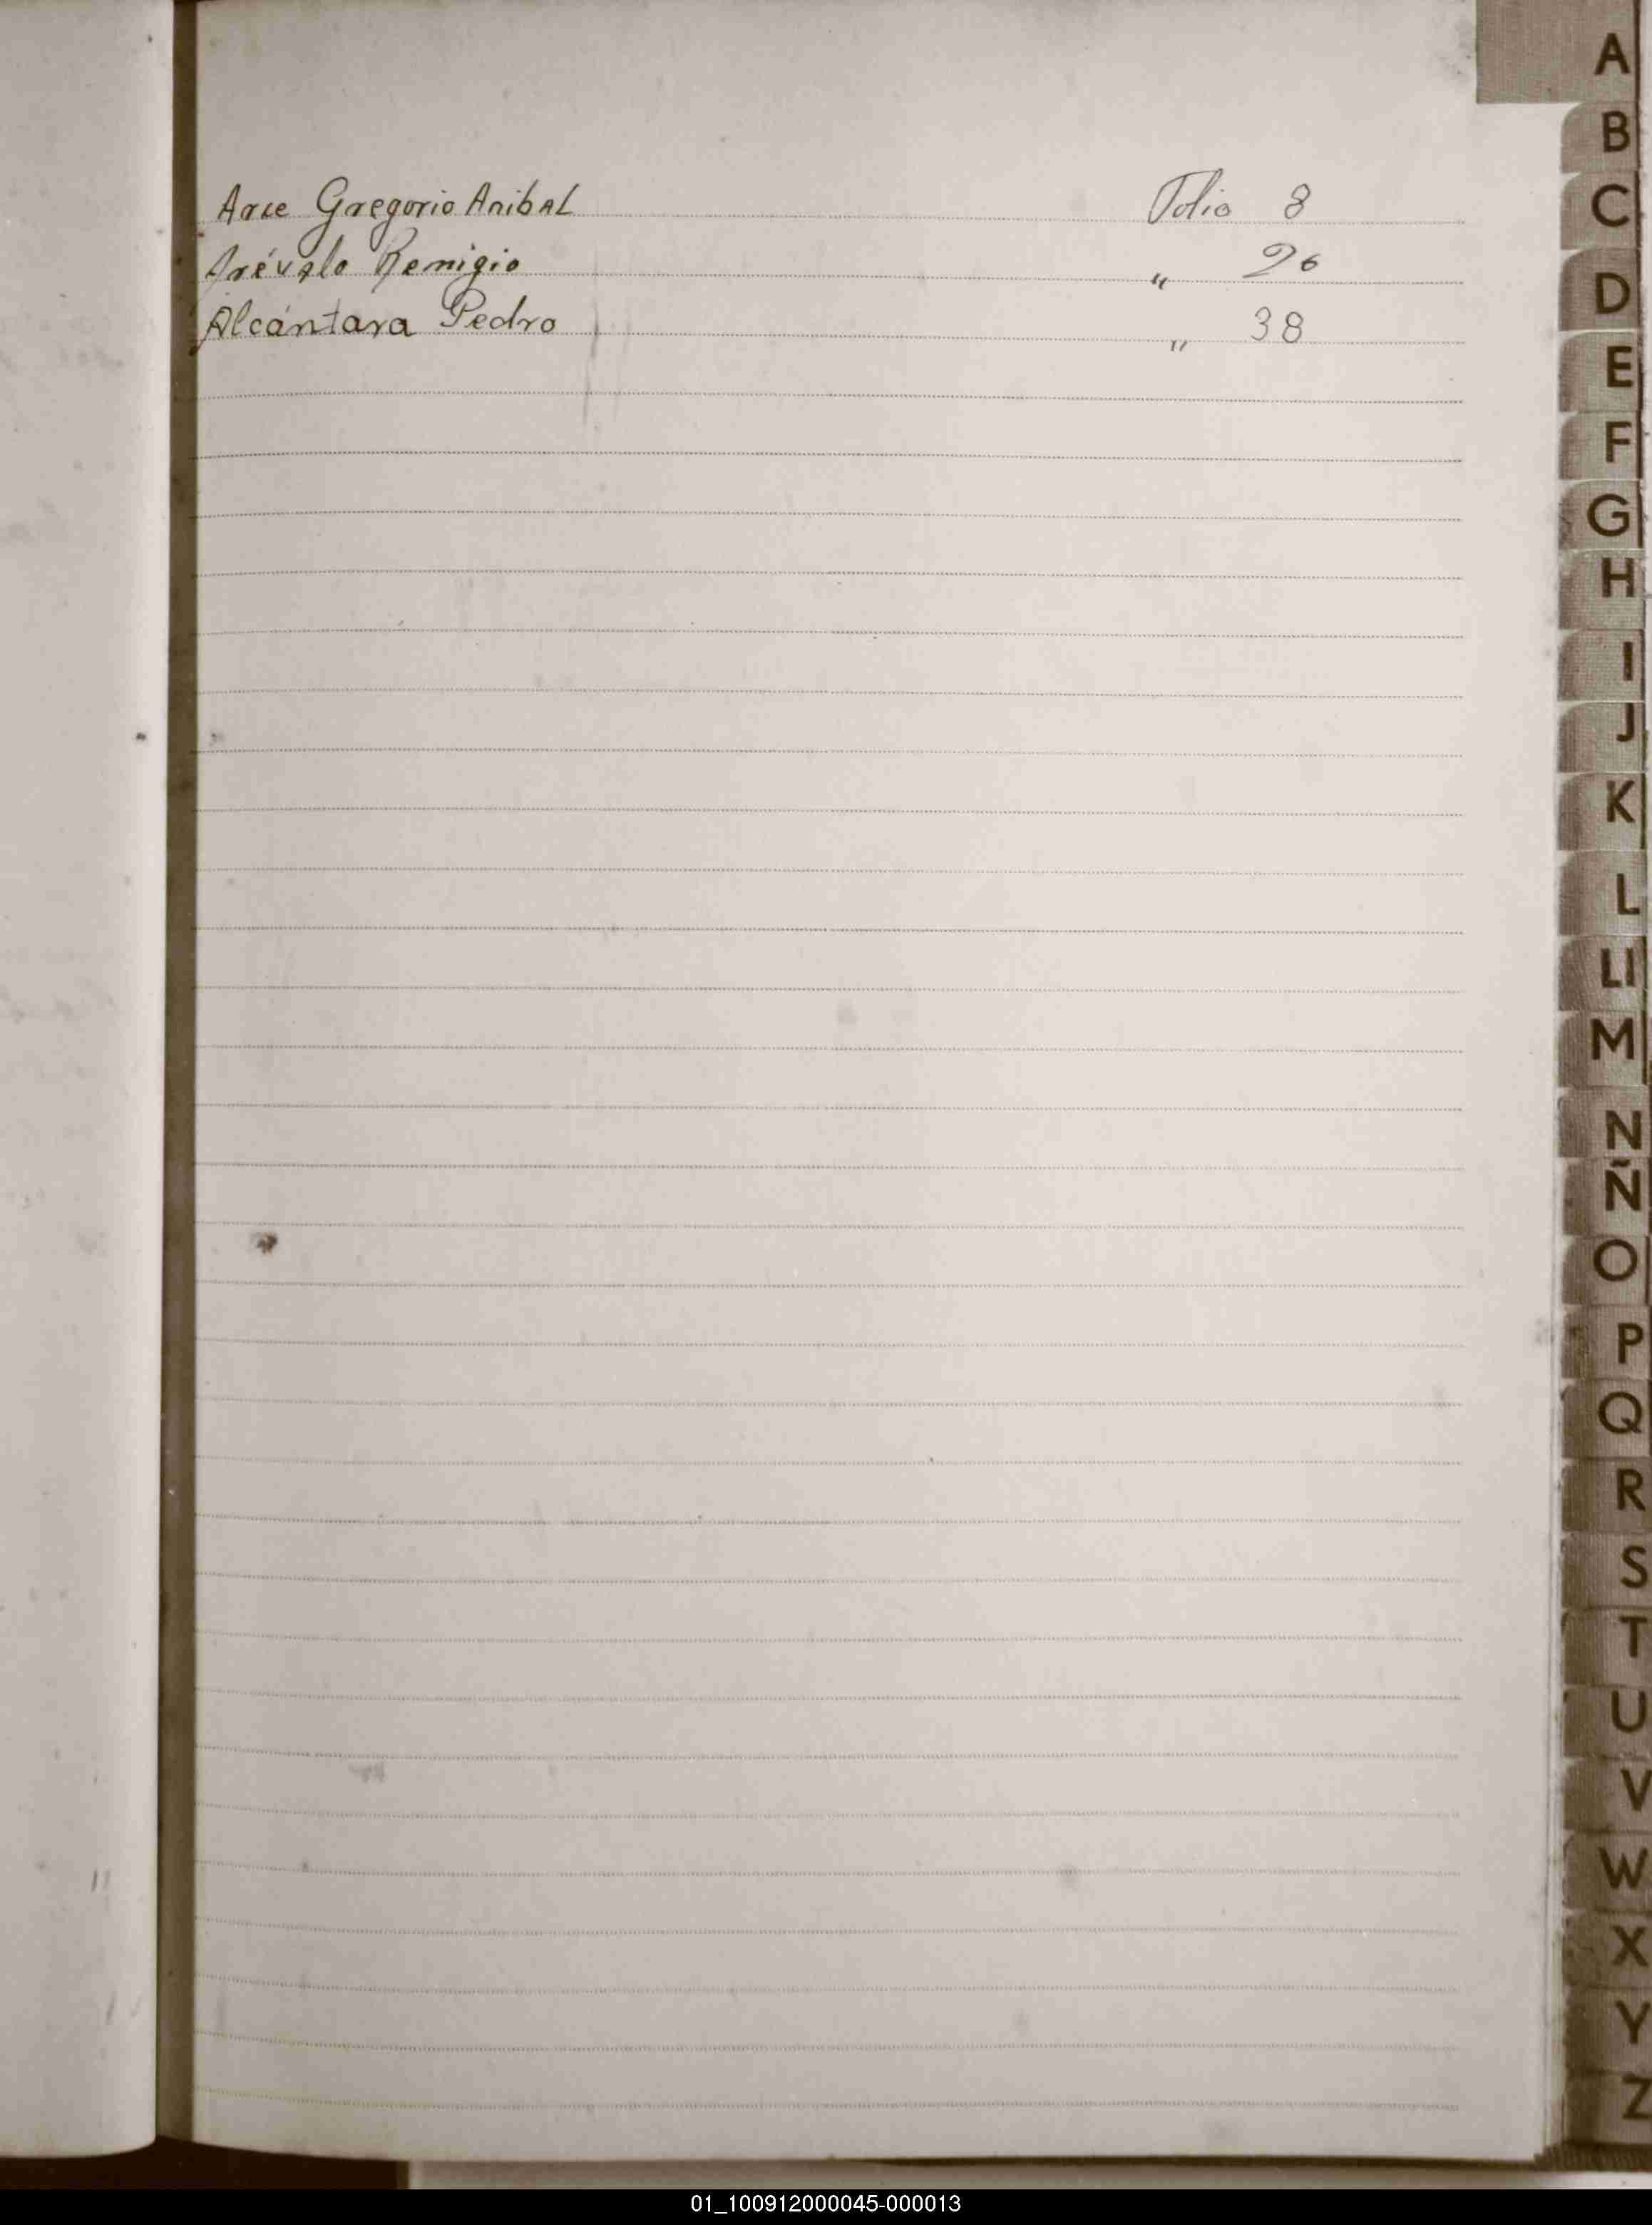 Arce Gregorio Anibal Folio 8
Arévalo Remigio " 26
Alcántara Pedro " 38
A
B
C
D
E
F
G
H
I
J
K
L
Ll
M
N
Ñ
O
P
Q
R
S
T
U
V
W
X
Y
Z
01_100912000045-000013